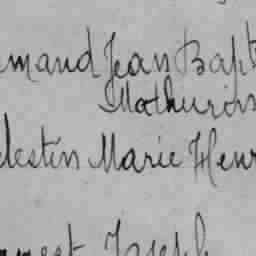 mand Jean Bapt
Mathurin
lestin Marie Henr
nest Joseph